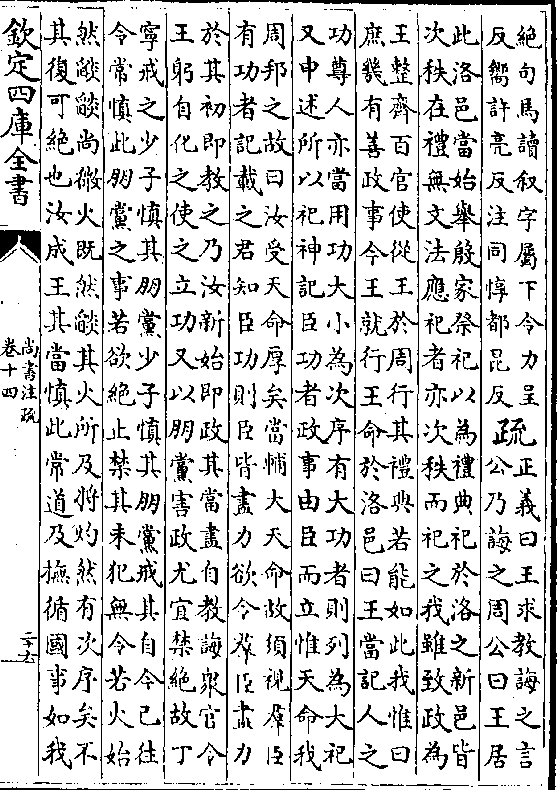 絶句馬讀叙字屬下令力呈
反嚮許亮反注同惇都昆反
疏
正義曰王求教誨之言
公乃誨之周公曰王居
此洛邑當始舉殷家祭祀以為禮典祀於洛之新邑皆
次秩在禮無文法應祀者亦次秩而祀之我雖致政為
王整齊百官使從王於周行其禮典若能如此我惟曰
庶幾有善政事今王就行王命於洛邑曰王當記人之
功尊人亦當用功大小為次序有大功者則列為大祀
又申述所以祀神記臣功者政事由臣而立惟天命我
周邦之故曰汝受天命厚矣當輔大天命故須視羣臣
有功者記載之君知臣功則臣皆盡力欲令羣臣盡力
於其初即教之乃汝新始即政其當盡自教誨衆官令
王躬自化之使之立功又以朋黨害政尤宜禁絶故丁
寧戒之少子慎其朋黨少子慎其朋黨戒其自今已往
令常慎此朋黨之事若欲絶止禁其未犯無令若火始
然燄燄尚微火既然燄其火所及將灼然有次序矣不
其復可絶也汝成王其當慎此常道及撫循國事如我
欽定四庫全書
尚書注疏
卷十四